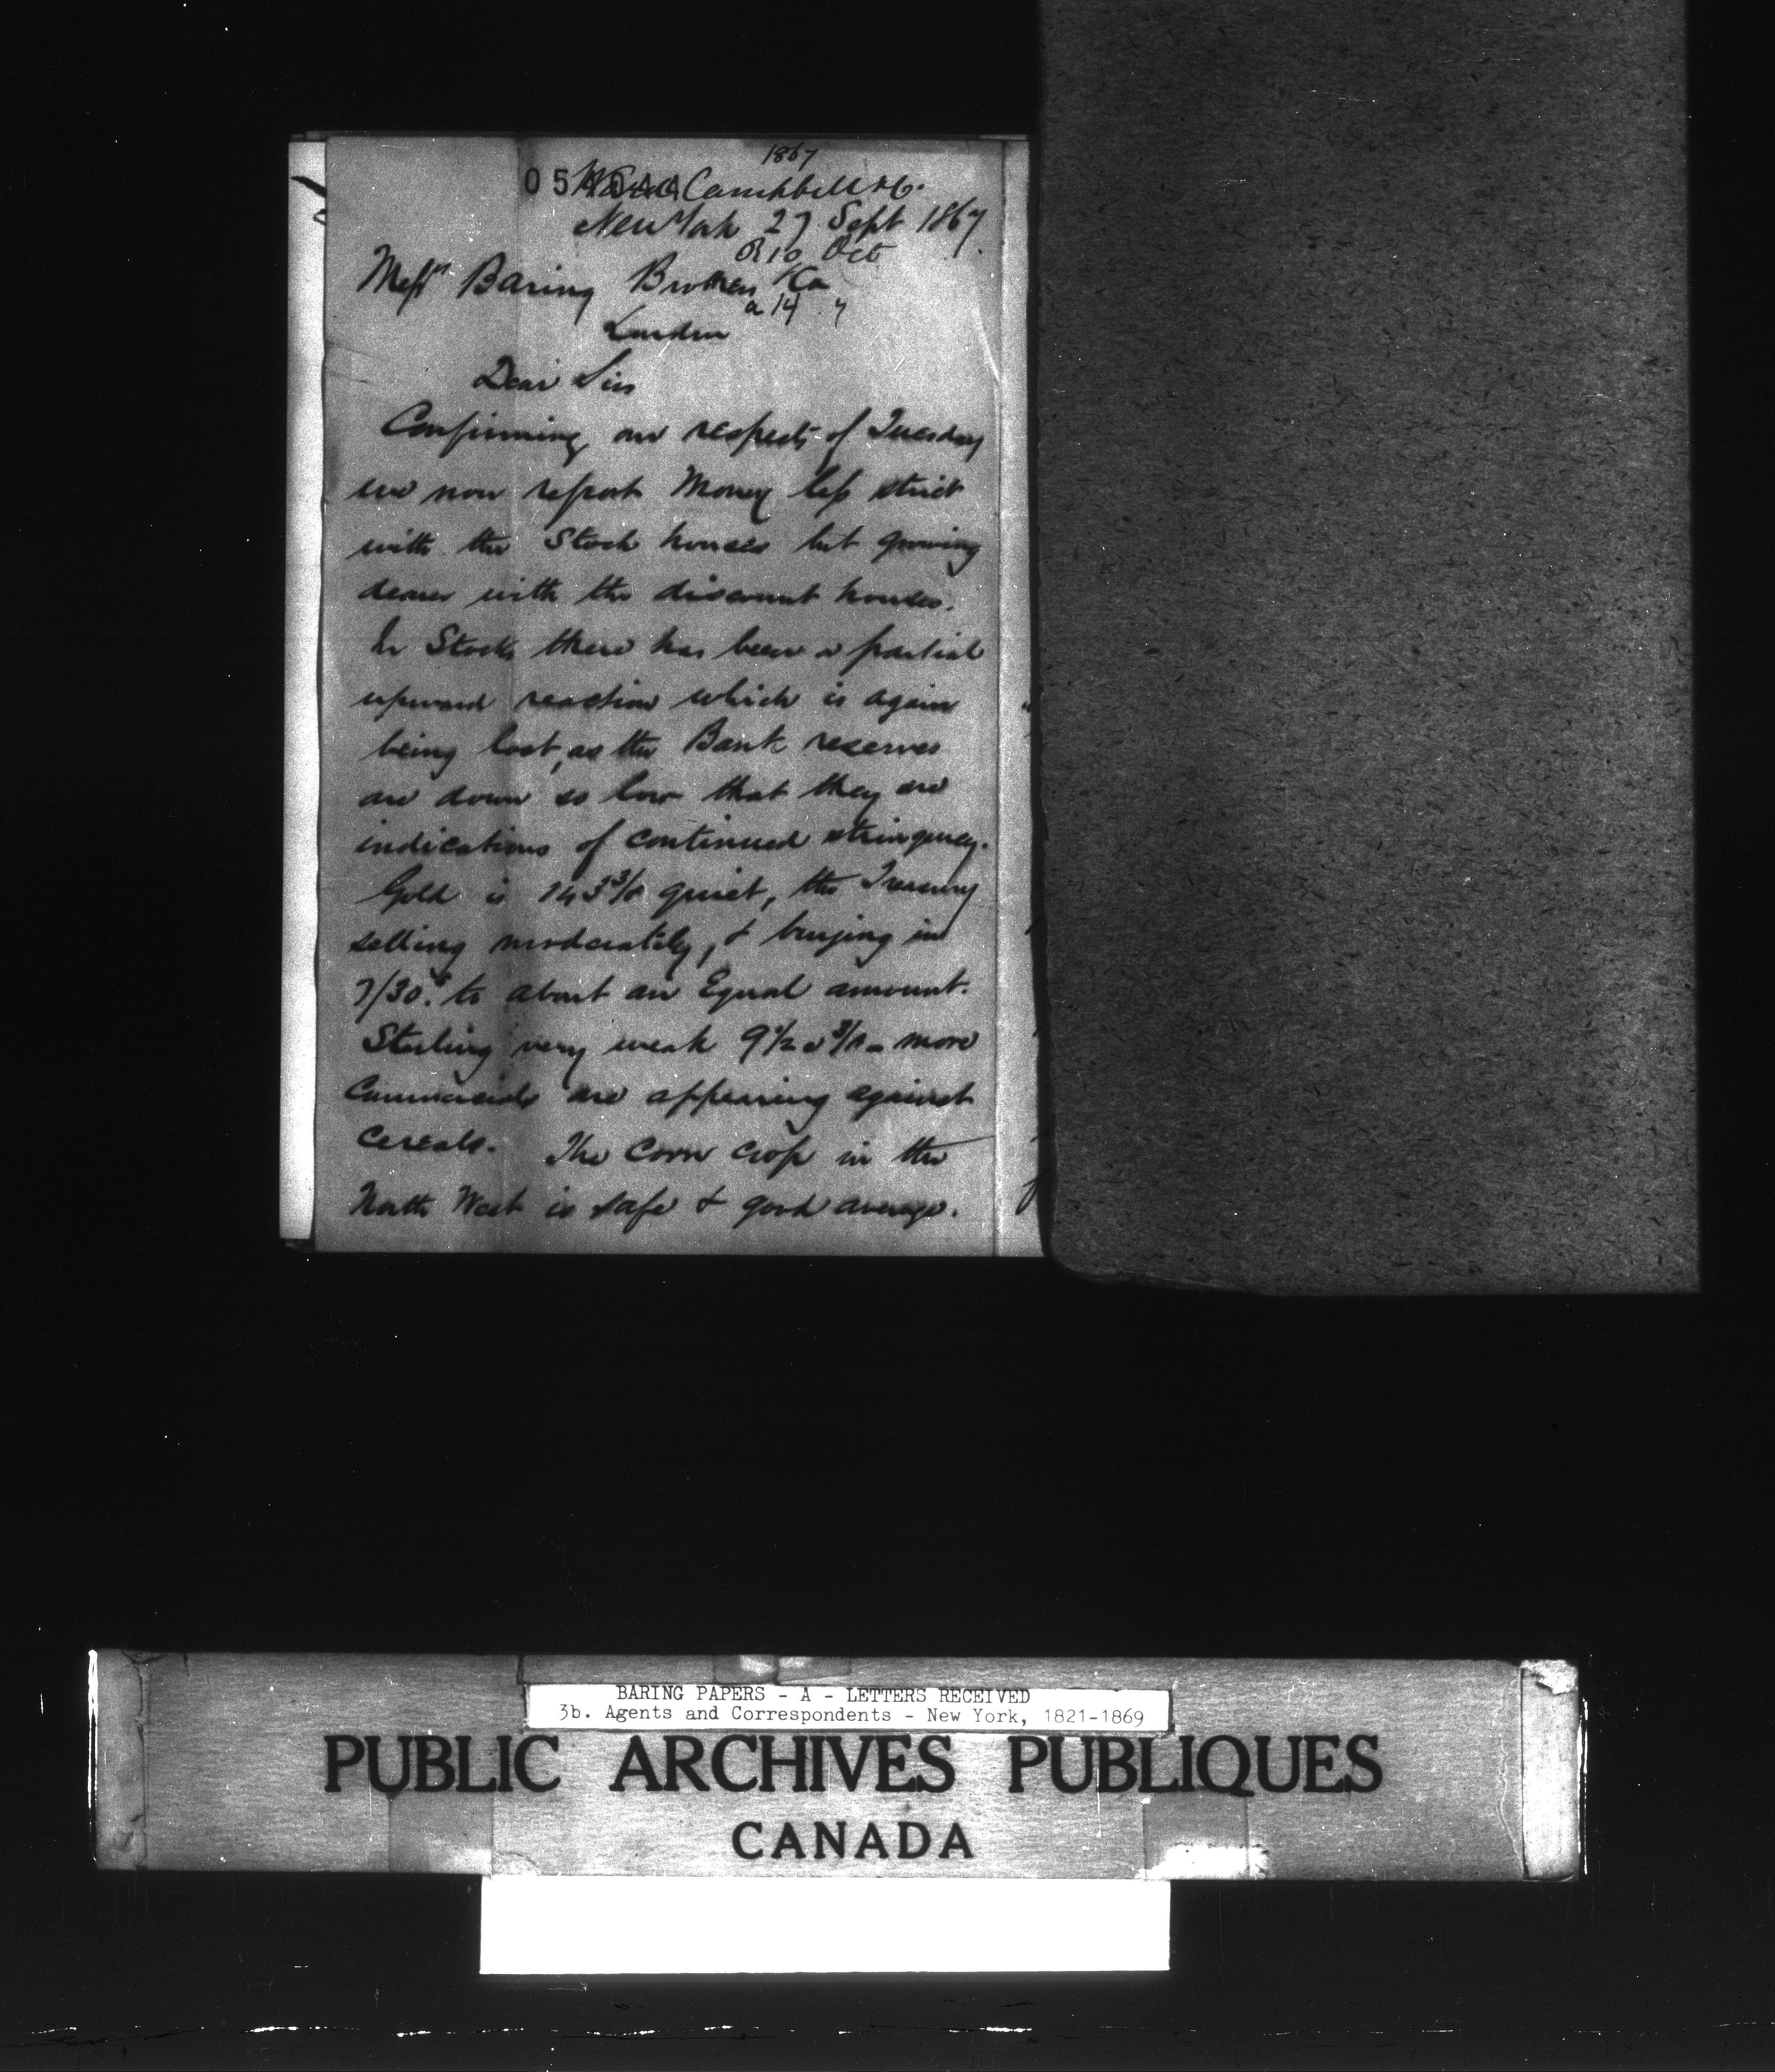 1867
Campbell & Co.
New York 27 Sept 1867
R 10 Oct
Messrs Baring Brothers & Co
a 14 "
London
Dear Sirs
Confirming our respects of Tuesday
we now report Money less strict
with the Stock houses but growing
dearer with the discount houses.
In Stocks there has been a partial
upward reaction which is again
being lost, as the Bank reserves
are down so low that they are
indications of continued stringency.
Gold is 143 3/8 quiet, the Treasury
selling moderately, & buying in
7/30.s to about an Equal amount.
Sterling very weak 9 1/2 a 3/8 - more
Commercials are appearing against
Cereals. The Corn crop in the
North West is safe & good average.
BARING PAPERS - A - LETTERS RECEIVED
3b. Agents and Correspondents - New York, 1821-1869
PUBLIC ARCHIVES PUBLIQUES
CANADA